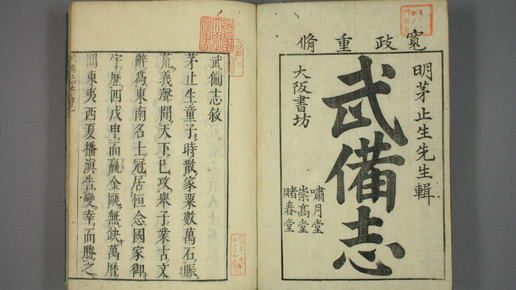 寬政重脩
明茅止生先生輯
武備志
嘯月堂
崇高堂
賭春堂
大阪書坊
武備志敘
茅止生童子時散家粟數萬石賑
荒義聲聞天下已攻舉子業古文
辭為東南名士冠居恒念國家御
宇歷四戊申而麗金甌無缺萬曆
間東夷西夏播滇告變幸而勝之